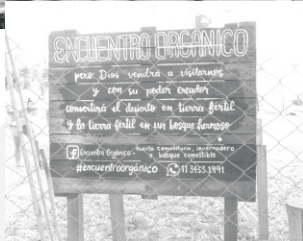 ENCUENTRO ORGÁNICO
pero Dios vendrá a visitarnos
y con su poder creador
convertirá el desierto en tierra fértil
y la tierra fértil en un bosque hermoso
f Encuentro Orgánico - huerta comunitaria, invernadero
a bosque comestible
#encuentroorgánico 11 3433.1991